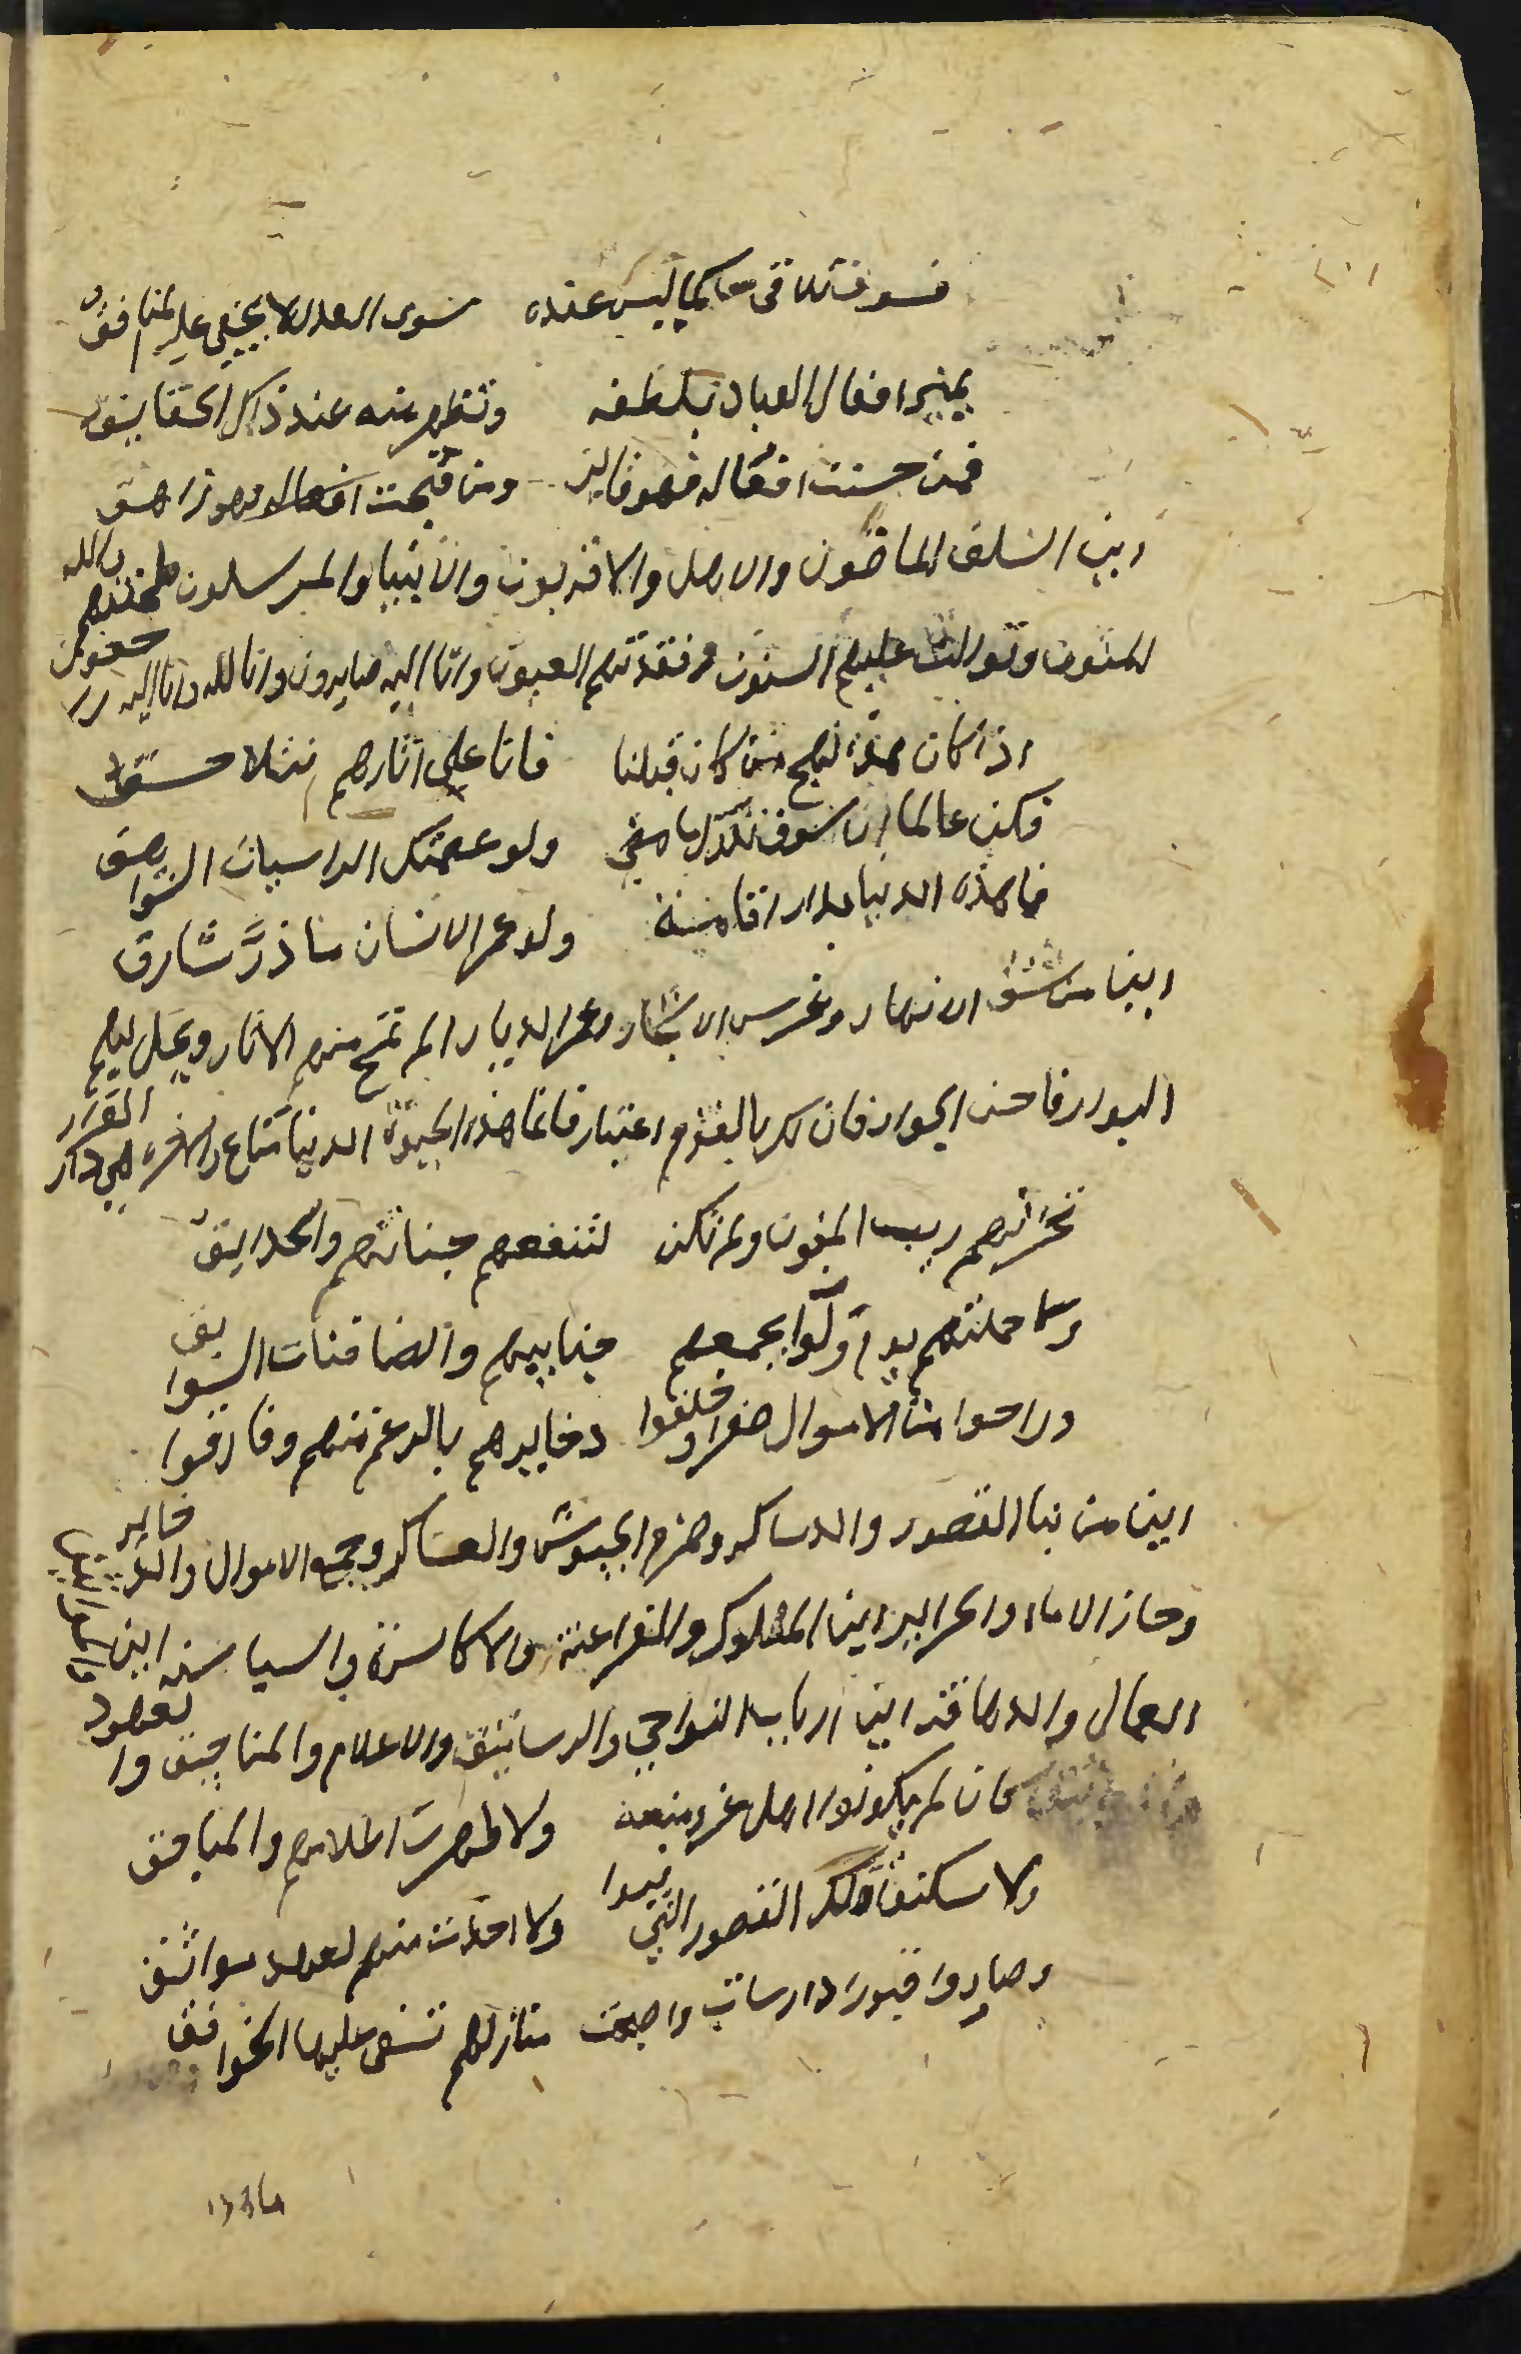 فسوف تلاقي حاكما ليس عنده سوى العدل لا يخفى عليه المنافق
يميز افعال العباد بلطفه وتظهر منه عند ذاك الحقايق
فمن حسنت افعاله فهو فايز ومن قبحت افعاله فهو زاهق
اين السلف الماضون والاهل والاقربون والانبيا والمرسلون طحنتهم والله
المنون وتوالت عليهم السنون وفقدتهم العيون وانا اليه صايرون وانا لله وانا اليه راجعون
اذا كان هذا نهج من كان قبلنا فانا على اثارهم نتلاحق
فكن عالما ان سوف تدرك من مضى ولو عصمتك الراسيات الشواهق
فما هذه الدنيا بدار اقامة ولو عمر الانسان ما ذر شارق
اين من شق الانهار وغرس الاشجار وعمر الديار الم تمح منهم الاثار ويحل بهم
البوار فاخش الجوار فان لك بالقوم اعتبار فانما هذه الحيوة الدنيا متاع والاخرة هي دار القرار
تخرمهم ريب المنون ولم تكن لتنفعهم جناتهم والحدايق
وما حملتهم يوم ولوا بجمعهم جنايبهم والصافنات السوابق
وراحوا من الاموال صفرا وخلفوا دخايرهم بالرغم منهم وفارقوا
اين من بنا القصور والدساكر وهزم الجيوش والعساكر وجمع الاموال والدخاير
وحاز الاماء والحراير اين الملوك والفراعنة والاكاسرة والسياسنه اين
العمال والدهاقنه اين ارباب النواحي والرساتيق والاعلام والمناجيق والعهود
كان لم يكونوا اهل عز ومنعه ولا ظهرت اعلامهم والمناجق
ولا سكنوا تلك القصور التي بنوا ولا اخذت منهم لعهد مواثق
وصاروا قبورا دارسات واصبحت منازلهم تسفى عليها الخوافق